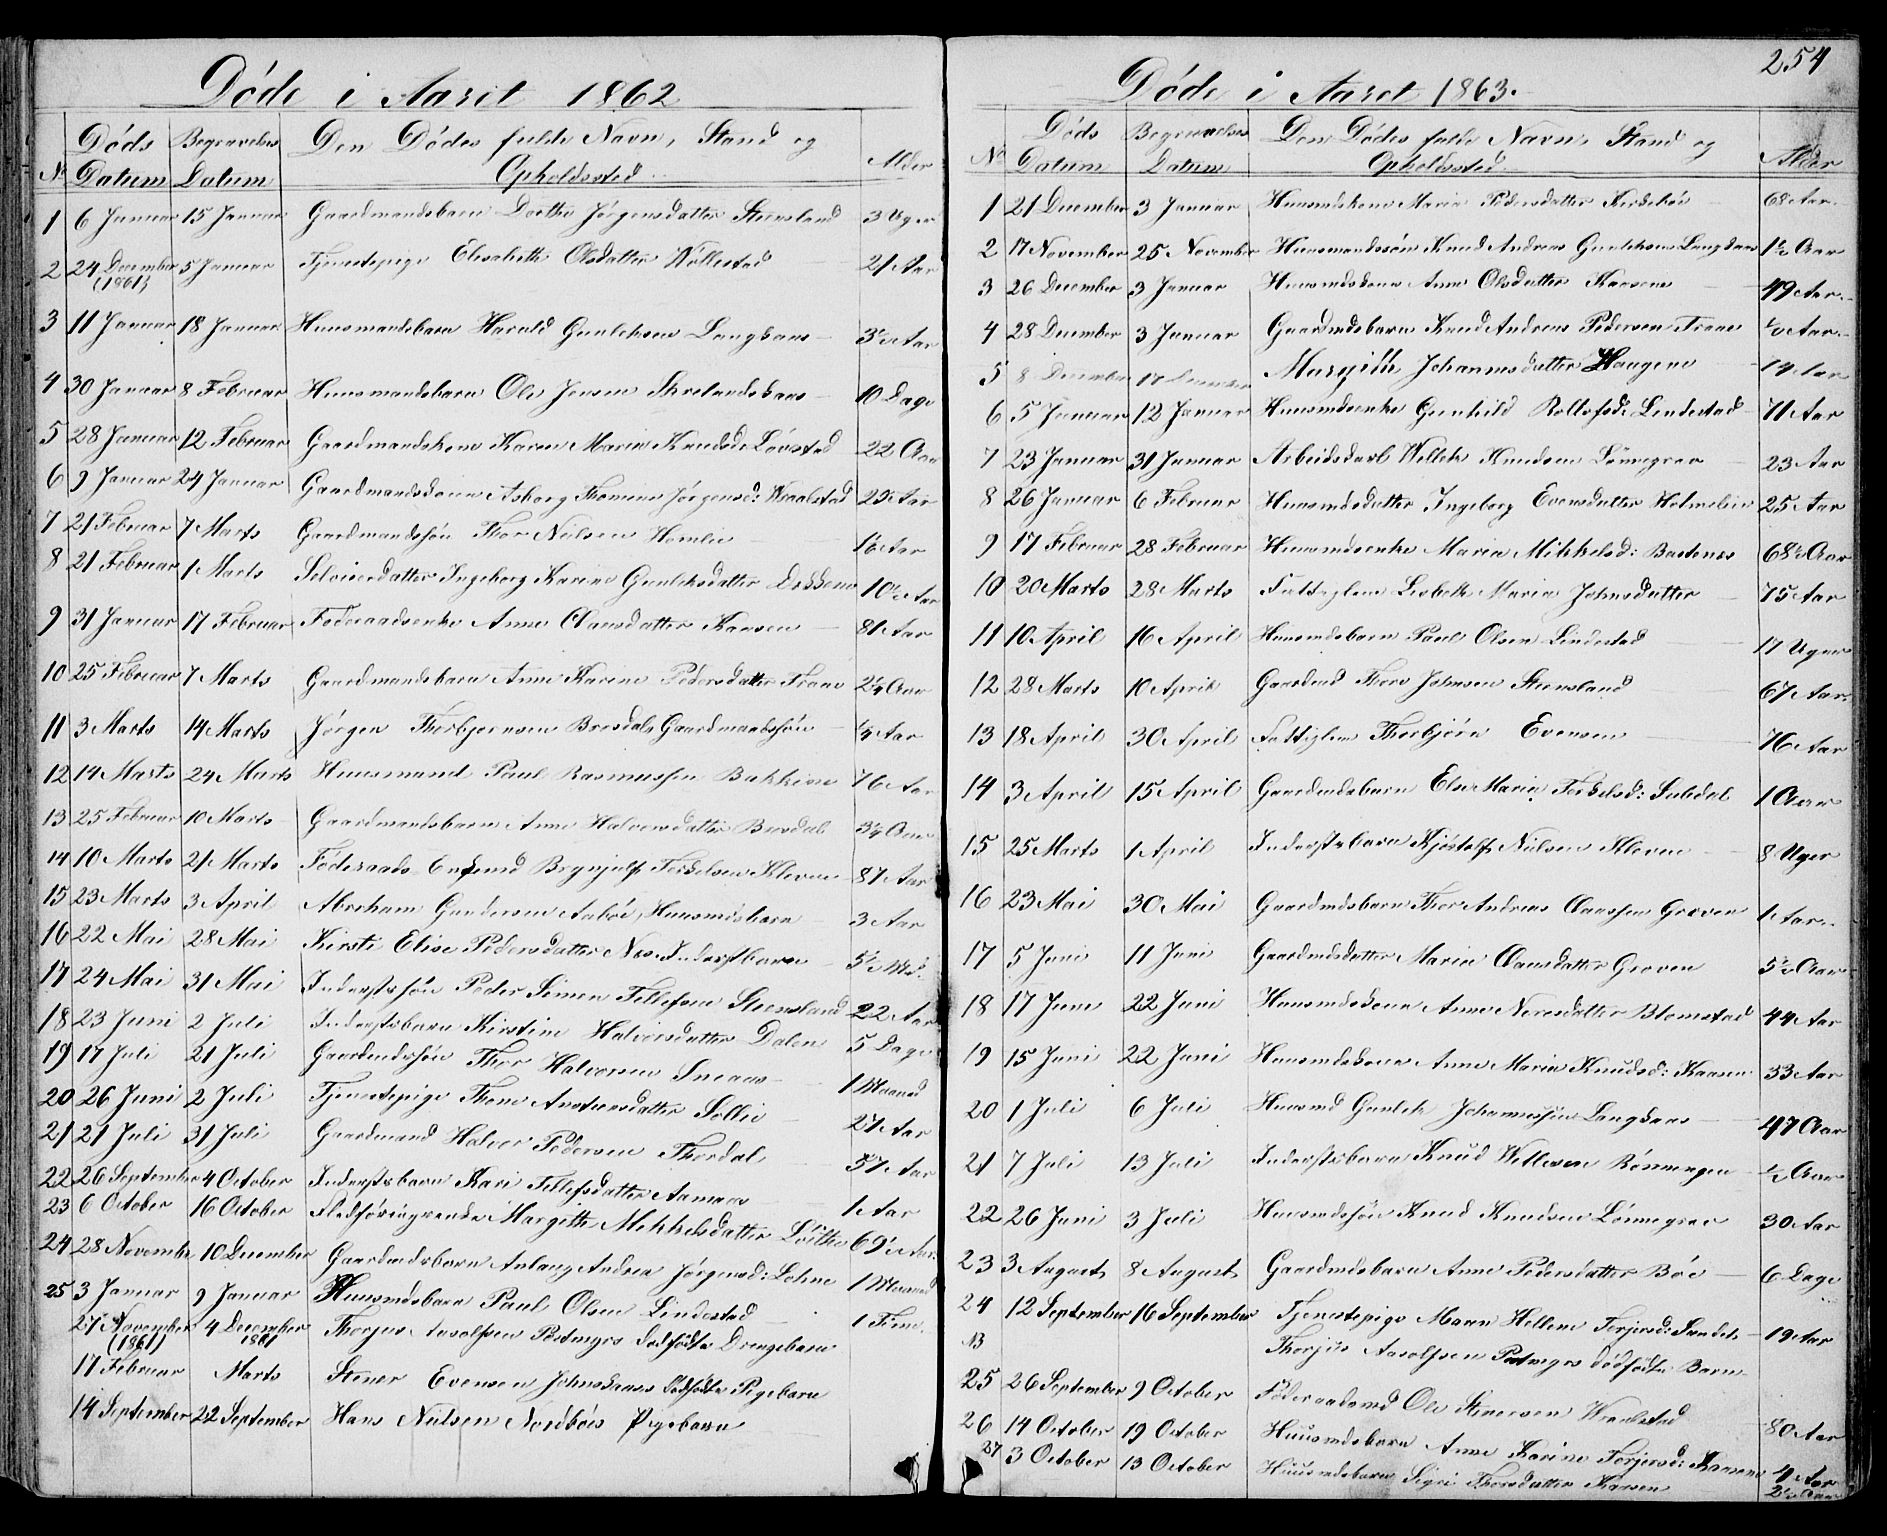 Døde i Aaret 1862
No Døds Datum Begravelses Datum Den Dødes fulde Navn, Stand og Opholdssted. Alder
1 6 Januar 15 Januar Gaardmandsbarn Dorthe Jørgensdatter Steensland 3 Uger
2 24 December (1861) 5 Januar Tjenestepige Elisabeth Olsdatter 21 Aar
3 11 Januar 18 Januar Huusmandsbarn Harald Gunleksen Langsaas 3½ Aar
4 30 Januar 8 Februar Huusmandsbarn Ole Jensen 10 Dage
5 28 Januar 12 Februar Gaardmandskone Karen Maria Knudsd: Løvstad 22 Aar
6 9 Januar 24 Januar Gaardmandskone Asborg Jørgensd: Wraalstad 29 Aar
7 21 Februar 7 Marts Gaardmandssøn Thor Nielsen Homlie Aar
8 21 Februar 1 Marts Selveierdatter Ingeborg Karine Gunleksdatter 10½ Aar
9 31 Januar 17 Februar Føderaadsenke Anne Clausdatter Kaasen 81 Aar
10 25 Februar 7 Marts Gaardmandsbarn Anne Karine Pedersdatter Traae 2¼ Aar
11 3 Marts 14 Marts Jørgen Thorbjørnsen Brosdals Gaardmandssøn ¼ Aar
12 14 Marts 24 Marts Huusmand Paul Rasmussen Bakken 76 Aar
13 25 Februar 10 Marts Gaardmandsbarn Anne Halvorsdatter 3¼ Aar
14 10 Marts 21 Marts Føderaads Brynjulf Terkelsen Kleven 87 Aar
15 23 Marts 3 April Abraham Gundersen Huusmdsbarn 3 Aar
16 22 Mai 28 Mai Kirsti Elise Pedersdatter Næs Inderstbarn 5½ Md.
17 24 Mai 31 Mai Inderstsøn Peder Simon Tellefsen Steensland 22 Aar
18 23 Juni 2 Juli Inderstsbarn Kirstine Halvorsdatter Dalen 5 Dage
19 17 Juli 21 Juli Gaardmdssøn Thor Halvorsen Sneaas 1 Maaned
20 26 Juni 2 Juli Tjenestepige Thone Andersdatter Sollie 27 Aar
21 21 Juli 31 Juli Gaardmand Halvor Pedersen Thordal 57 Aar
22 26 September 4 October Inderstsbarn Kari Tellefsdatter Aamaas 1 Aar
23 6 October 16 October Margith Mikkelsdatter 69½ Aar
24 28 November 10 December Gaardmdsbarn Anlaug Andrea Jørgensd: Lohne 1 Maaned
25 3 Januar 9 Januar Huusmdsbarn Paul Olsen Lindestad 1 Time
27 November (1861) 4 December 1861 Thorjus Aasolfsen Postmyrs Dødfødte Drengebarn
17 Februar Marts Stener Evensen Johnskaas Dødfødte Pigebarn
14 September 22 September Hans Nielsen Nordbøes Pigebarn
254
Døde i Aaret 1863.
No Døds Datum Begravelses Datum Den Dødes fulde Navn, Stand og Opholdssted. Alder
1 21 December 3 Januar Huusmdskone Maria Pedersdatter 68 Aar
2 17 November 25 November Huusmandssøn Knud Andreas Gunleksen Langsaas 1½ Aar
3 26 December 3 Januar Huusmdskone Anne Olsdatter Kaasene 49 Aar
4 28 December 3 Januar Gaardmdsbarn Knud Andreas Pedersen Traae ½ Aar
5 8 December 17 December Margith Johannesdatter Haugene 14 Aar
6 5 Januar 12 Januar Huusmdsenke Gunhild Lindestad 71 Aar
7 23 Januar 31 Januar Arbeidskarl Wellek Knudsen Lønnegrav 23 Aar
8 26 Januar 6 Februar Huusmdsdatter Ingeborg Evensdatter Holmelien 25 Aar
9 17 Februar 28 Februar Huusmdsenke Maria Mikkelsd: Bastenes 68½ Aar
10 20 Marts 28 Marts Fattiglem Lisbeth Maria Johnsdatter 75 Aar
11 10 April 16 April Huusmdsbarn Paul Olsen Lindestad 17 Uger
12 28 Marts 10 April Gaardmd Thore Johnsen Steensland 67 Aar
13 18 April 30 April Fattiglem Thorbjørn Evensen 76 Aar
14 3 April 15 April Gaardmdsbarn Else Maria Terkelsd: 1 Aar
15 25 Marts 1 April Inderstsbarn Kjøstolf Nielsen Kleven 8 Uger
16 23 Mai 30 Mai Gaardmdsbarn Thor Andreas Claussen Groven 1 Aar
17 5 Juni 11 Juni Gaardmdsdatter Maria Clausdatter Groven 5½ Aar
18 17 Juni 22 Juni Huusmdskone Anne Neresdatter Blomstad 44 Aar
19 15 Juni 22 Juni Huusmdskone Anne Maria Knudsd: Kaasen 33 Aar
20 1 Juli 6 Juli Huusmd Gunlek Johannessen Langsaas 47 Aar
21 7 Juli 13 Juli Inderstsbarn Knud Willesen Rønningen ½ Aar
22 26 Juni 3 Juli Huusmdssøn Knud Knudsen Lønnegrav 30 Aar
23 3 August 8 August Gaardmdsbarn Anne Pedersdatter Bøe 6 Dage
24 12 September 16 September Tjenestepige Maren Hellene Terjersd: 19 Aar
NB Thorjus Aasolfsen Postmyrs dødfødte Barn
25 26 September 9 October Føderaadsmd Ole Stenersen Wraalstad 80 Aar
26 14 October 19 October Huusmdsbarn Anne Karine Terjersd: Kaasene 4 Aar
27 3 October 13 October Huusmdsbarn Sigri Thorsdatter Kaasen 2½ Aar